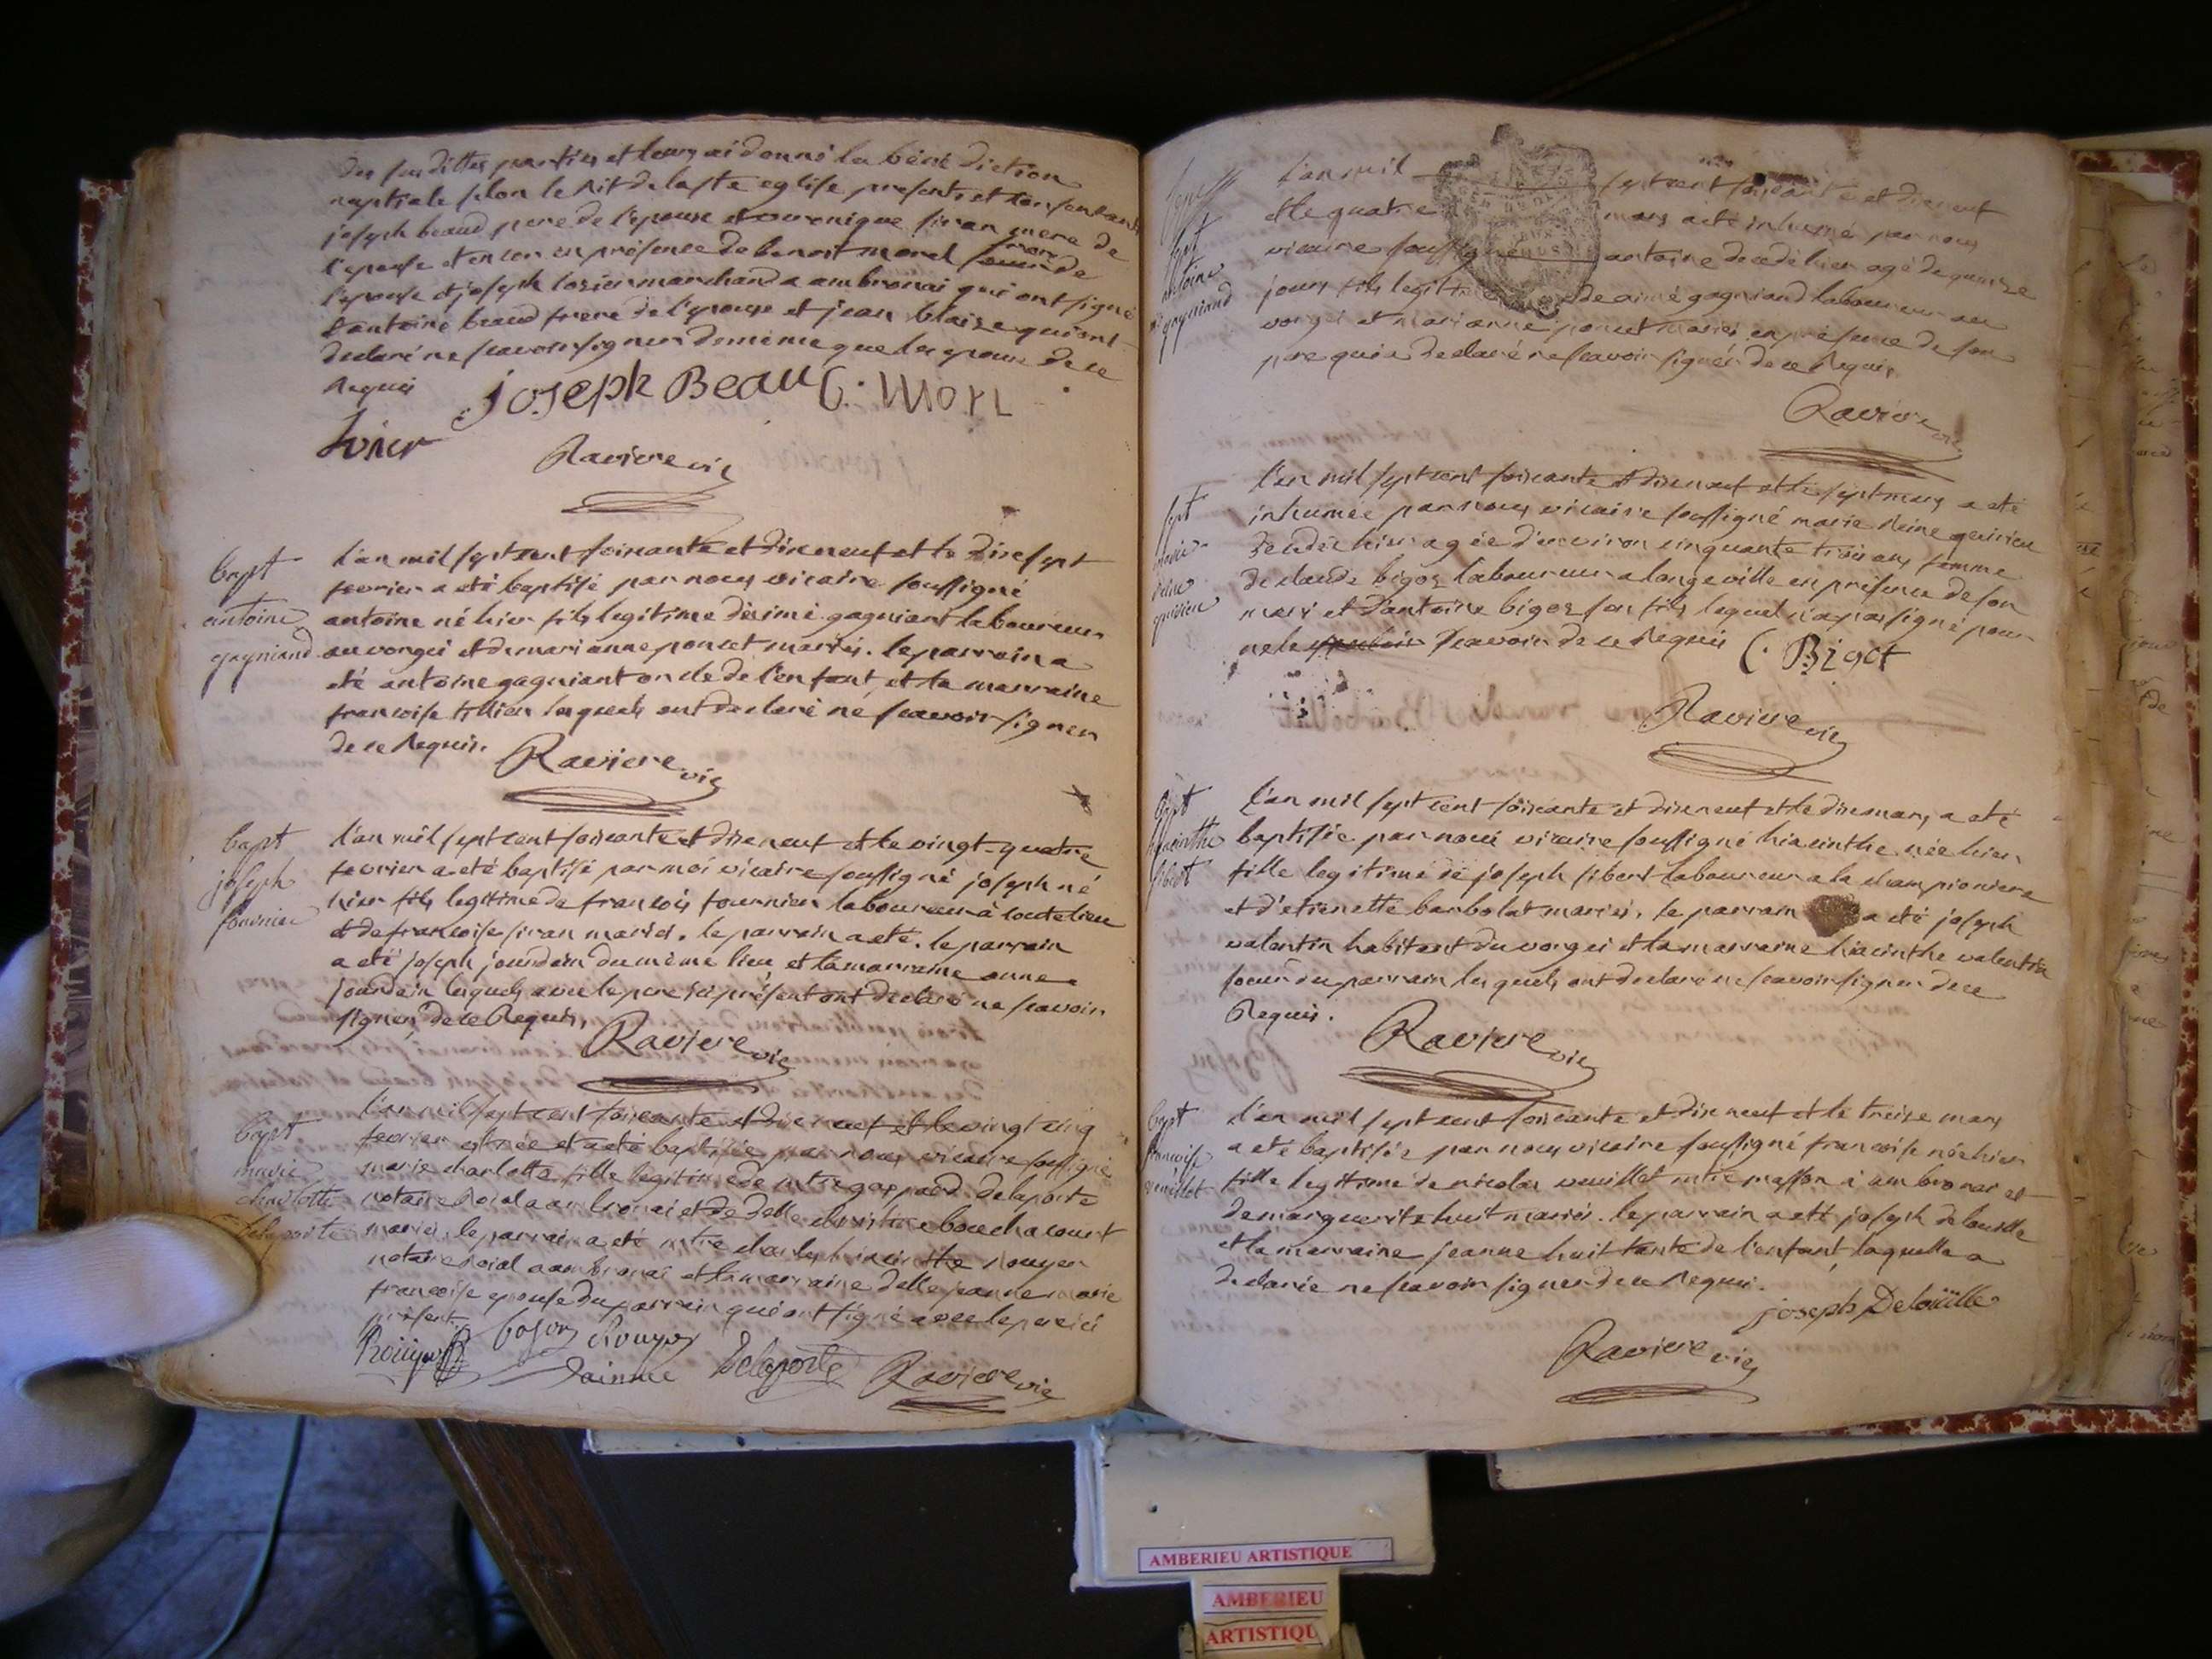 des susdittes parties et leurs ai donné la béné diction
nuptiale selon le Rit de la ste eglise presents et consentants
joseph beaud pere de l'epouse et veronique sivan mere de
l'epouse et encor en présence de benoit morel
l'epouse et joseph losier marchand a ambronai qui ont signé
d'antoine beaud frere de l'epouse et jean blaise qui ont
declaré ne scavoir signer de même que les epoux de ce
Requis
joseph Beau C. Morl
Raviere vic
bapt
antoine
gagniand
l'an mil sept cent soixante et dix neuf et le dix sept
fevrier a eté baptisé par nous vicaire soussigné
antoine né hier fils legitime d'aimé gagniant laboureur
au vorgei et de mari anne poncet mariés. le parrain a
eté antoine gagniant oncle de l'enfant et la marraine
francoise lesquels ont declaré ne scavoir signer
de ce Requis. Raviere vic
bapt
joseph
fournier
l'an mil sept cent soixante et dix neuf et le vingt-quatre
fevrier a eté baptisé par moi vicaire soussigné joseph né
hier fils legitime de francois fournier laboureur à
et de francoise sivan mariés. le parrain a eté. le parrain
a eté joseph jourdain du même lieu et la marraine anne
jourdain lesquels avec le pere ici présent ont declaré ne scavoir
signer de ce Requis,
Raviere vic
bapt
marie
charlotte
delaporte
l'an mil sept cent soixante et dix neuf et le vingt cinq
fevrier est née et a eté baptisée par nous vicaire soussigné
marie charlotte fille legitime de mtre gaspard delaporte
notaire Roial a ambronai et de delle christine bouchacourt
mariés, le parrain a eté mtre charles hiacinthe rouyer
notaire roial a ambronai et la marraine delle jeanne marie
francoise epouse du parrain qui ont signé avec le pere ici
présent.
Roüyer Rouyer
Delaporte Raviere vic
sept
antoine
gagniand
l'an mil sept cent soixante et dix neuf
et le quatre mars a eté inhumé par nous
vicaire soussigné antoine decedé hier agé de quinze
jours fils legitime de aimé gagniand laboureur au
vorgei et mari anne poncet mariés en présence de son
pere qui a declaré ne scavoir signer de ce Requis
Raviere vic
sept
marie
Reine
l'an mil sept cent soixante et dix neuf et le sept mars a eté
inhumée par nous vicaire soussigné marie Reine
decedée hier agée d'environ cinquante trois ans femme
de claude bigoz laboureur a longeville en présence de son
mari et d'antoine bigoz son fils lequel n'a pas signé pour
ne le scavoir de ce Requis C. Bigot
Raviere vic
bapt
hiacinthe
sibert
l'an mil sept cent soixante et dix neuf et le dix mars a eté
baptisée par nous vicaire soussigné hiacinthe née hier
fille legitime de joseph sibert laboureur a la championiere
et d'etienette barbolat mariés, le parrain a eté joseph
valentin habitant du vorgei et la marraine hiacinthe valentin
soeur du parrain lesquels ont declaré ne scavoir signer de ce
Requis.
Raviere vic
bapt
francoise
veuillet
l'an mil sept cent soixante et dix neuf et le treize mars
a eté baptisée par nous vicaire soussigné francoise née hier
fille legitime de nicolas veuillet mtre masson à ambronai et
de marguerite huit mariés. le parrain a eté joseph delouille
et la marraine jeanne huit tante de l'enfant, laquelle a
declarée ne scavoir signer de ce Requis.
joseph Deloüille
Raviere vic
AMBERIEU ARTISTIQUE
AMBERIEU
ARTISTIQU